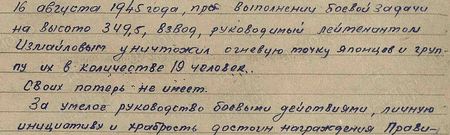 16 августа 1945 года, при выполнении боевой задачи
на высоте 349,5, взвод, руководимый лейтенантом
Измайловым уничтожил огневую точку японцев и груп-
пу их в количестве 19 человек.
Своих потерь не имеет.
За умелое руководство боевыми действиями, личную
инициативу и храбрость достоин награждения Прави-